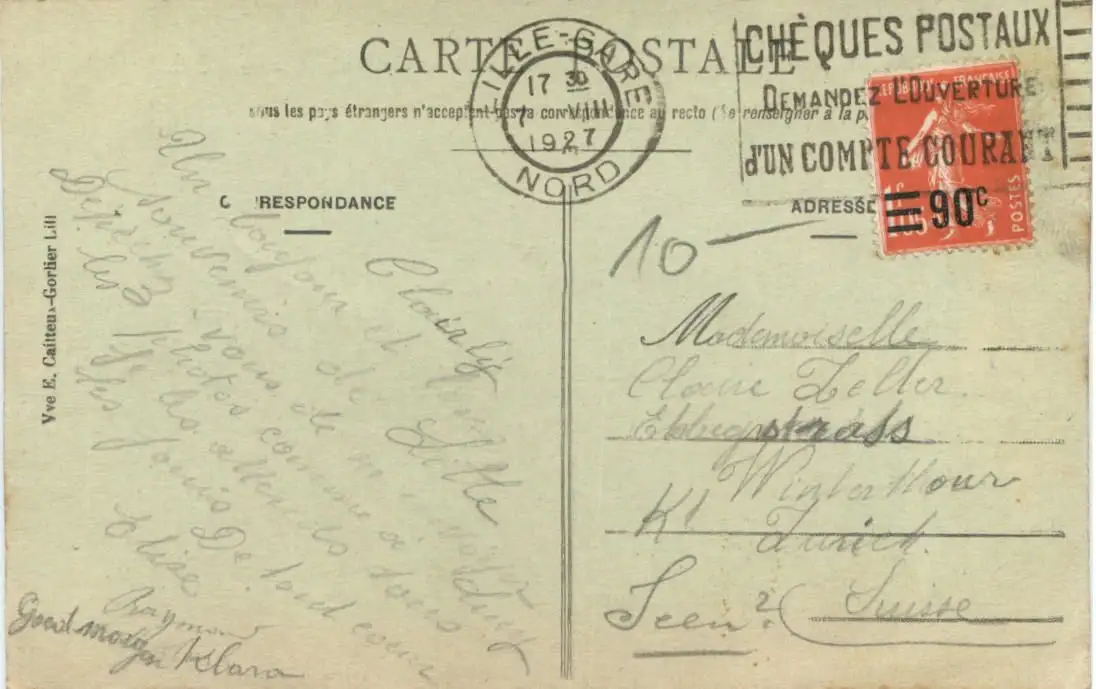 CARTE POSTALE
ous les pays étrangers n'acceptent pas la correspondance au recto (Se renseigner à la p
LILLE-GARE
17 30
7 VIII
1927
NORD
CHÈQUES POSTAUX
DEMANDEZ L'OUVERTURE
d'UN COMPTE COURANT
REPUBLIQUE FRANÇAISE
POSTES
90c
C RRESPONDANCE
ADRESSE
Vve E. Caitteux-Gortier Lill
Un bonjour et
souvenirs de Lille
Dépêchez vous de m'
les photos comme
je les attends tous
les jours De tout coeur
Elise
Raymond
Good morgen Klara
10
Mademoiselle
Claire Zeller
strass
Winterthour
Kt Zurich
Seen? (Suisse